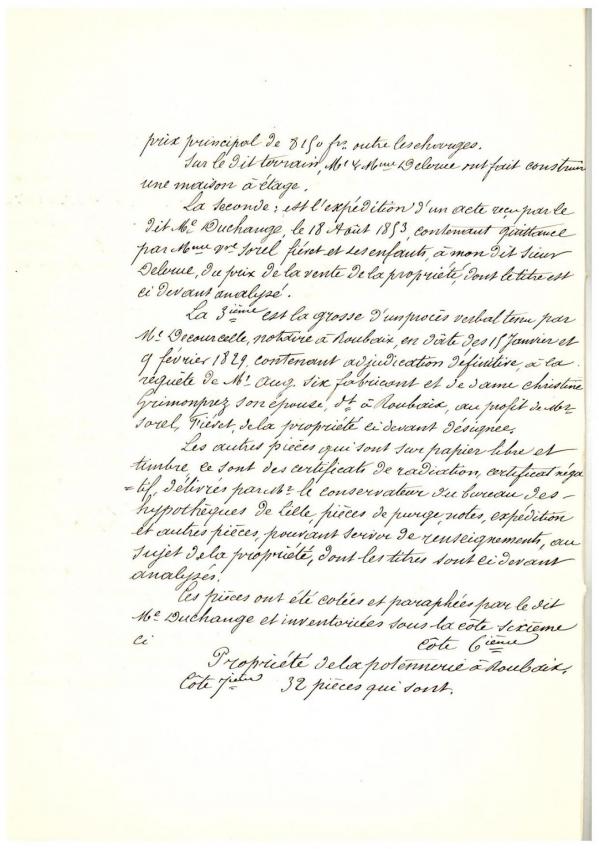 prix principal de 8150 frs outre les charges.
Sur le dit terrain, Mr & Mme Delerue ont fait construire
une maison à étage.
La seconde ; est l'expédition d'un acte reçu par le
dit Me Duchange, le 18 Août 1853, contenant quittance
par Mme Vve Sorel fiévet et ses enfants, à mon dit Sieur
Delerue, du prix de la vente de la propriété, dont le titre est
ci devant analysé.
La 3ième est la grosse d'un procès verbal tenu par
Me Decourcelle, notaire à Roubaix, en dâte des 15 Janvier et
9 février 1829, contenant adjudication définitive, à la
réquête de Mr Aug. Six fabricant et de dame Christine
Grimonprez son épouse, dt à Roubaix, au profit de Mr
Sorel, Fiévet, de la propriété ci devant désignée.
Les autres pièces qui sont sur papier libre et
timbre, ce sont des certificats de radiation, certificat néga
=tif, délivrés par Mr le conservateur du bureau des-
hypothèques de Lille, pièces de purge, notes, expédition
et autres pièces, pouvant servir de renseignements, au
sujet de la propriété, dont les titres sont ci devant
analysés.
Ces pièces ont été cotées et paraphées par le dit
Me Duchange et inventoriées sous la côte sixième
ci Côte 6ième
Propriété de la potennerie à Roubaix.
Côte 7ième 32 pièces qui sont.